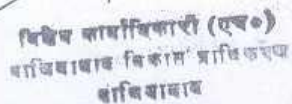 विहित कार्याधिकारी (एच०)
गाजियाबाद विकास प्राधिकरण
गाजियाबाद